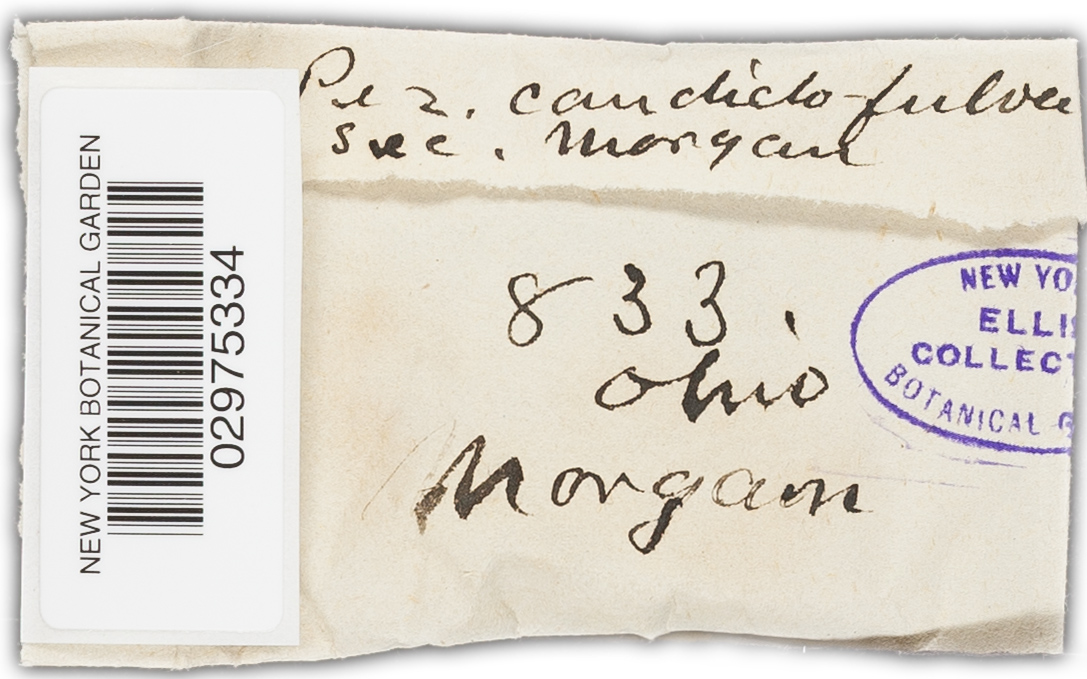 Pez. candido-fulva
sec. Morgan
833.
Ohio
Morgan
NEW YORK BOTANICAL GARDEN
02975334
NEW YO
ELLIS
COLLECT
BOTANICAL G